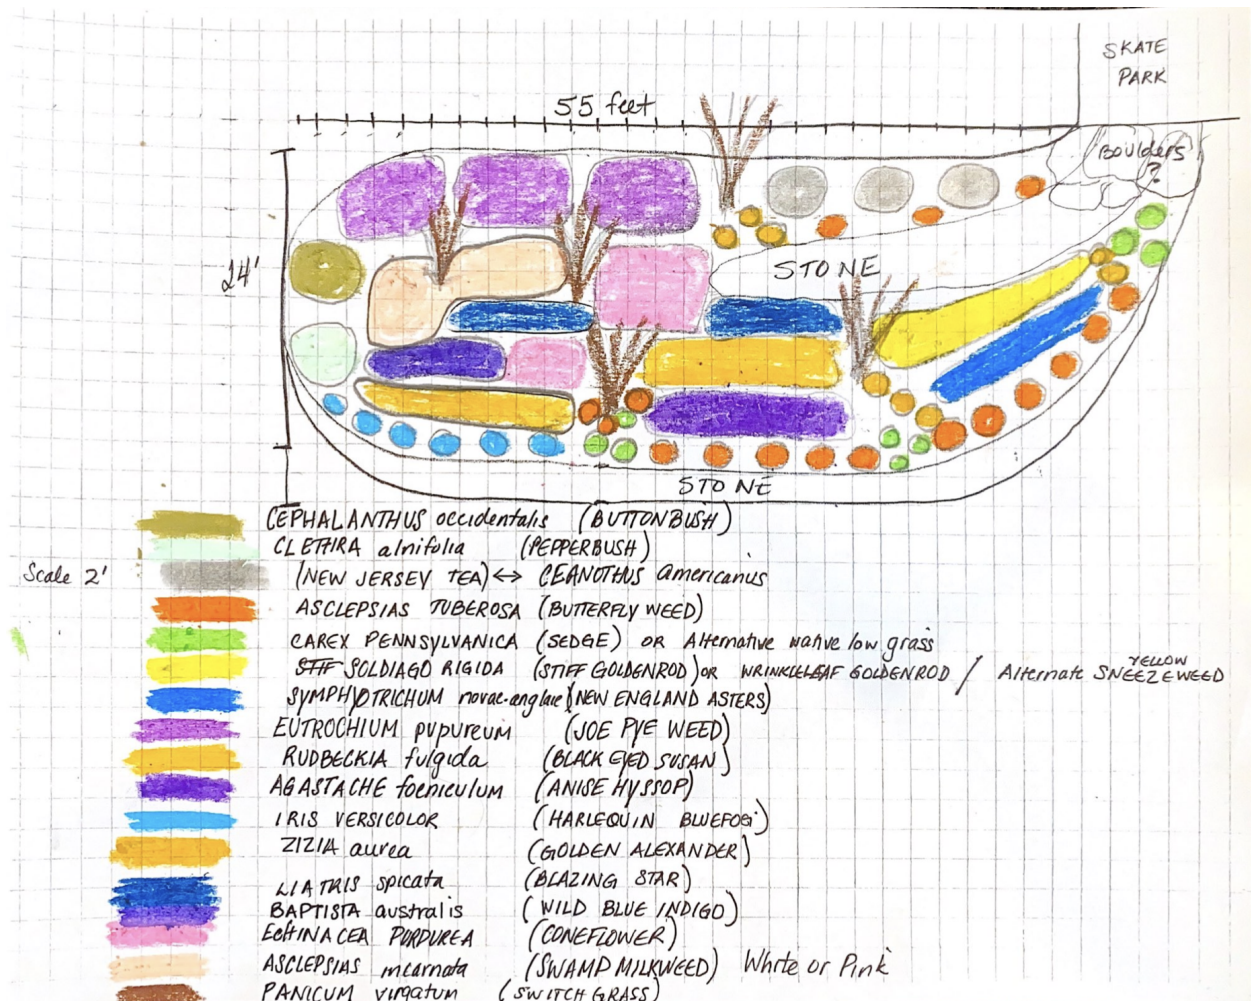 SKATE
PARK
55 feet
BOULDERS
?
24'
STONE
STONE
CEPHALANTHUS occidentalis (BUTTONBUSH)
CLETHRA alnifolia (PEPPERBUSH)
Scale 2' (NEW JERSEY TEA) ↔ CEANOTHUS americanus
ASCLEPSIAS TUBEROSA (BUTTERFLY WEED)
CAREX PENNSYLVANICA (SEDGE) OR Alternative native low grass
SOLDIAGO RIGIDA (STIFF GOLDENROD) or WRINKLELEAF GOLDENROD / Alternate YELLOW SNEEZEWEED
SYMPHYOTRICHUM novae-angliae (NEW ENGLAND ASTERS)
EUTROCHIUM pupureum (JOE PYE WEED)
RUDBECKIA fulgida (BLACK EYED SUSAN)
AGASTACHE foeniculum (ANISE HYSSOP)
IRIS VERSICOLOR (HARLEQUIN BLUEFOG)
ZIZIA aurea (GOLDEN ALEXANDER)
LIATRIS spicata (BLAZING STAR)
BAPTISTA australis (WILD BLUE INDIGO)
EcHINACEA PURDUREA (CONEFLOWER)
ASCLEPSIAS incarnata (SWAMP MILKWEED) White or Pink
PANICUM virgatum (SWITCH GRASS)